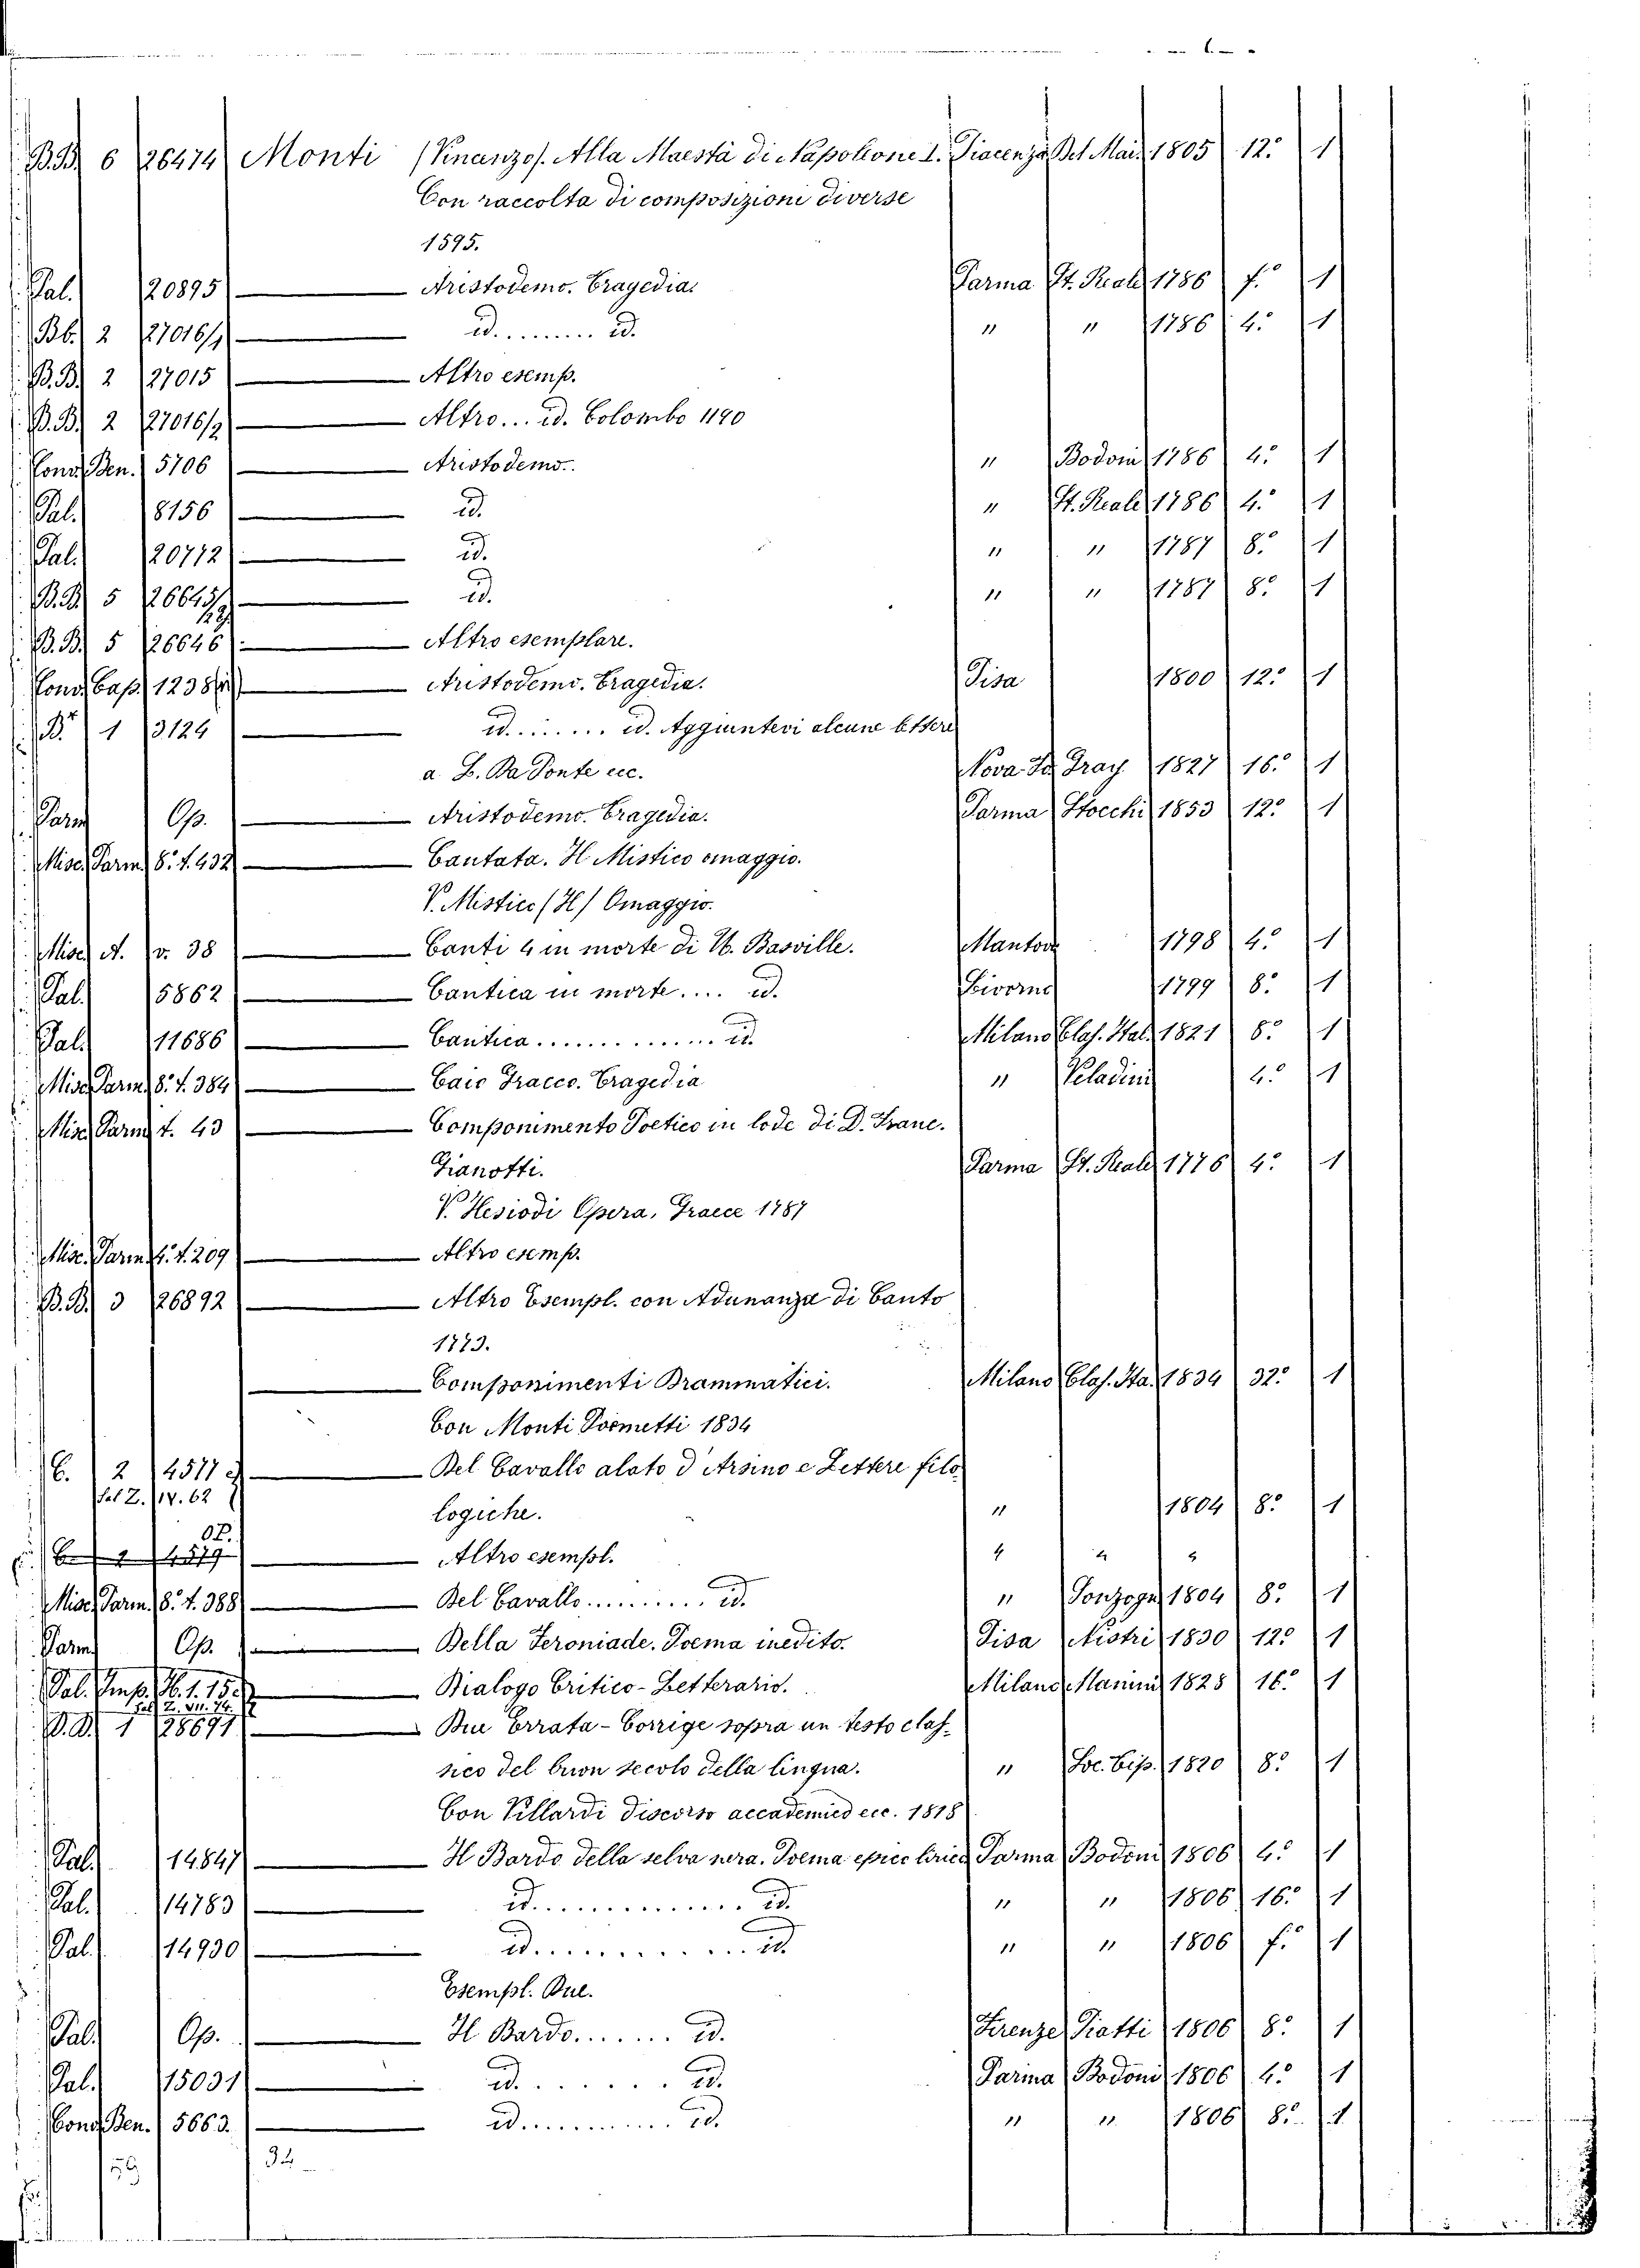 B.B. 6 26474 Monti (Vinanzo). Alla Maestà di Napoleone I. Piacenza Del Mai. 1805 12.° 1
Con raccolta di composizioni diverse
1595.
Pal. 20895 — Aristodemo. Tragedia. Parma St. Reale 1786 f.° 1
Bb. 2 27016/1 — id. ........ id. " " 1786 4.° 1
B.B. 2 27015 — Altro esemp.
B.B. 2 27016/2 — Altro... id. Colombo 1190
Cond. Ben. 5706 — Aristodemo.. " Bodoni 1786 4.° 1
Pal. 8156 — id. " St. Reale 1786 4.° 1
Pal. 20772 — id. " " 1787 8.° 1
B.B. 5 26645/ — id. " " 1787 8.° 1
B.B. 5 26646 — Altro esemplare.
Cond. Cap. 1238 — Aristodemo. Tragedia. Pisa 1800 12.° 1
B.r 1 3124 — id. ...... id. Aggiuntevi alcune lettere
a L. Da Ponte ecc. Nova Gray 1827 16.° 1
Parm. Op. — Aristodemo. Tragedia. Parma Stocchi 1853 12.° 1
Misc. Parm. 8.° t. 432 — Cantata. Il Mistico omaggio.
V. Mistico (Il) Omaggio.
Misc. A. v. 38 — Canti 4 in morte di U. Basville. Mantova 1798 4.° 1
Pal. 5862 — Cantica in morte.... id. Livorno 1799 8.° 1
Pal. 11686 — Cantica ............... id. Milano Clas. Ital. 1821 8.° 1
Misc. Parm. 8.° t. 384 — Caio Gracco. Tragedia " Veladini 4.° 1
Misc. Parm. t. 43 — Componimento Poetico in lode di D. Franc.
Gianotti. Parma St. Reale 1776 4.° 1
V. Hesiodi Opera, Graece 1787
Misc. Parm. 4.° t. 209 — Altro esemp.
B.B. 3 26892 — Altro Esempl. con Adunanza di Canto
1773.
— Componimenti Drammatici. Milano Clas. Ita. 1834 32.° 1
Con Monti Poemetti 1834
C. 2 4577 — Del Cavallo alato d'Arsino e Lettere filo
Sal Z. IV. 62 logiche. " 1804 8.° 1
Op. 4579 — Altro esempl. " " "
Misc. Parm. 8.° t. 388 — Del Cavallo .......... id. " Sonzogn. 1804 8.° 1
Parm. Op. — Della Feroniade. Poema inedito. Pisa Nistri 1830 12.° 1
Pal. Imp. Ib. 1. 15 — Dialogo Critico-Letterario. Milano Manini 1828 16.° 1
B.B. 1 28671 — Due Errata-Corrige sopra un testo clas-
sico del buon secolo della lingua. " Soc. Tip. 1820 8.° 1
Con Villardi Discorso accademico ecc. 1818
Pal. 14847 — Il Bardo della selva nera. Poema epico lirico Parma Bodoni 1806 4.° 1
Pal. 14783 — id. ............... id. " " 1806 16.° 1
Pal. 14930 — id. ............... id. " " 1806 f.° 1
Esempl. Due.
Pal. Op. — Il Bardo....... id. Firenze Piatti 1806 8.° 1
Pal. 15031 — id. ....... id. Parma Bodoni 1806 4.° 1
Cond. Ben. 5663. — id. .......... id. " " 1806 8.° 1
59 34